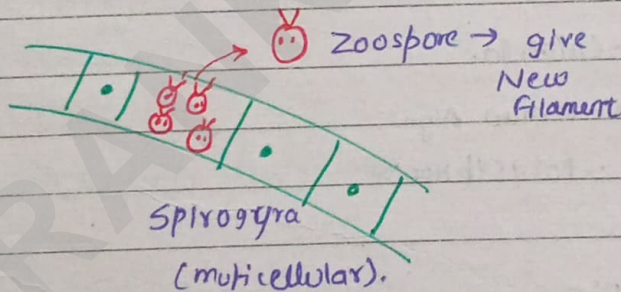 zoospore → give
New
filament
Spirogyra
(muticellular).